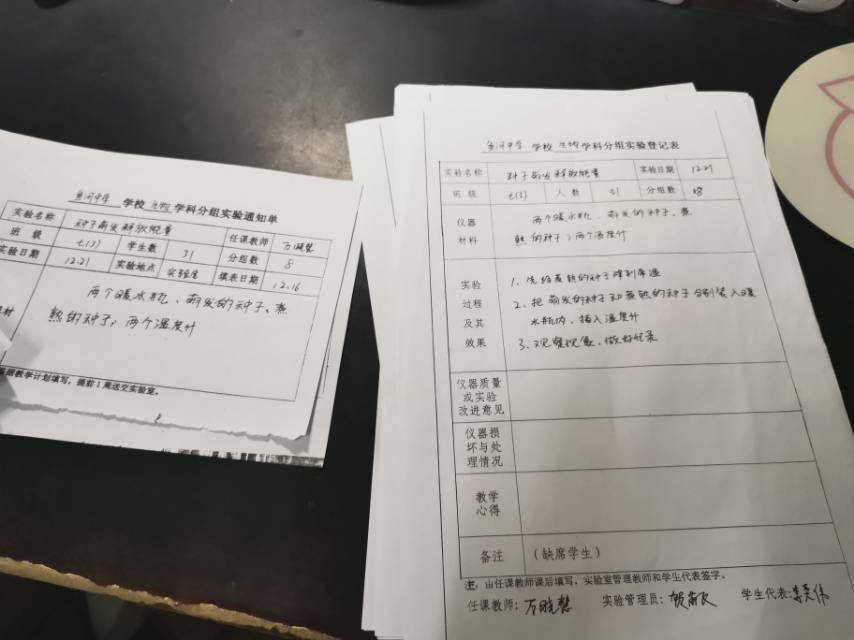 鱼河中学 学校 生物 学科分组实验通知单
实验名称 种子萌发释放能量 任课教师
班 级 七(3) 学生数 31 分组数 8
实验日期 12.21 实验地点 实验室 填表日期 12.16
两个暖水瓶、萌发的种子、煮
熟的种子;两个温度计
教学计划填写,提前1周送交实验室。
鱼河中学 学校 生物 学科分组实验登记表
实验名称 种子萌发释放能量 实验日期 12.21
班 级 七(3) 人 数 31 分组数 8
仪器
材料
两个暖水瓶、萌发的种子、煮
熟的种子;两个温度计
实验
过程
及其
效果
1、先将煮熟的种子降到常温
2、把萌发的种子和煮熟的种子分别装入暖
水瓶内,插入温度计
3、观察现象,做好记录
仪器质量
或实验
改进意见
仪器损
坏与处
理情况
教学
心得
备注 (缺席学生)
注:由任课教师课后填写,实验室管理教师和学生代表签字。
任课教师: 实验管理员: 学生代表: